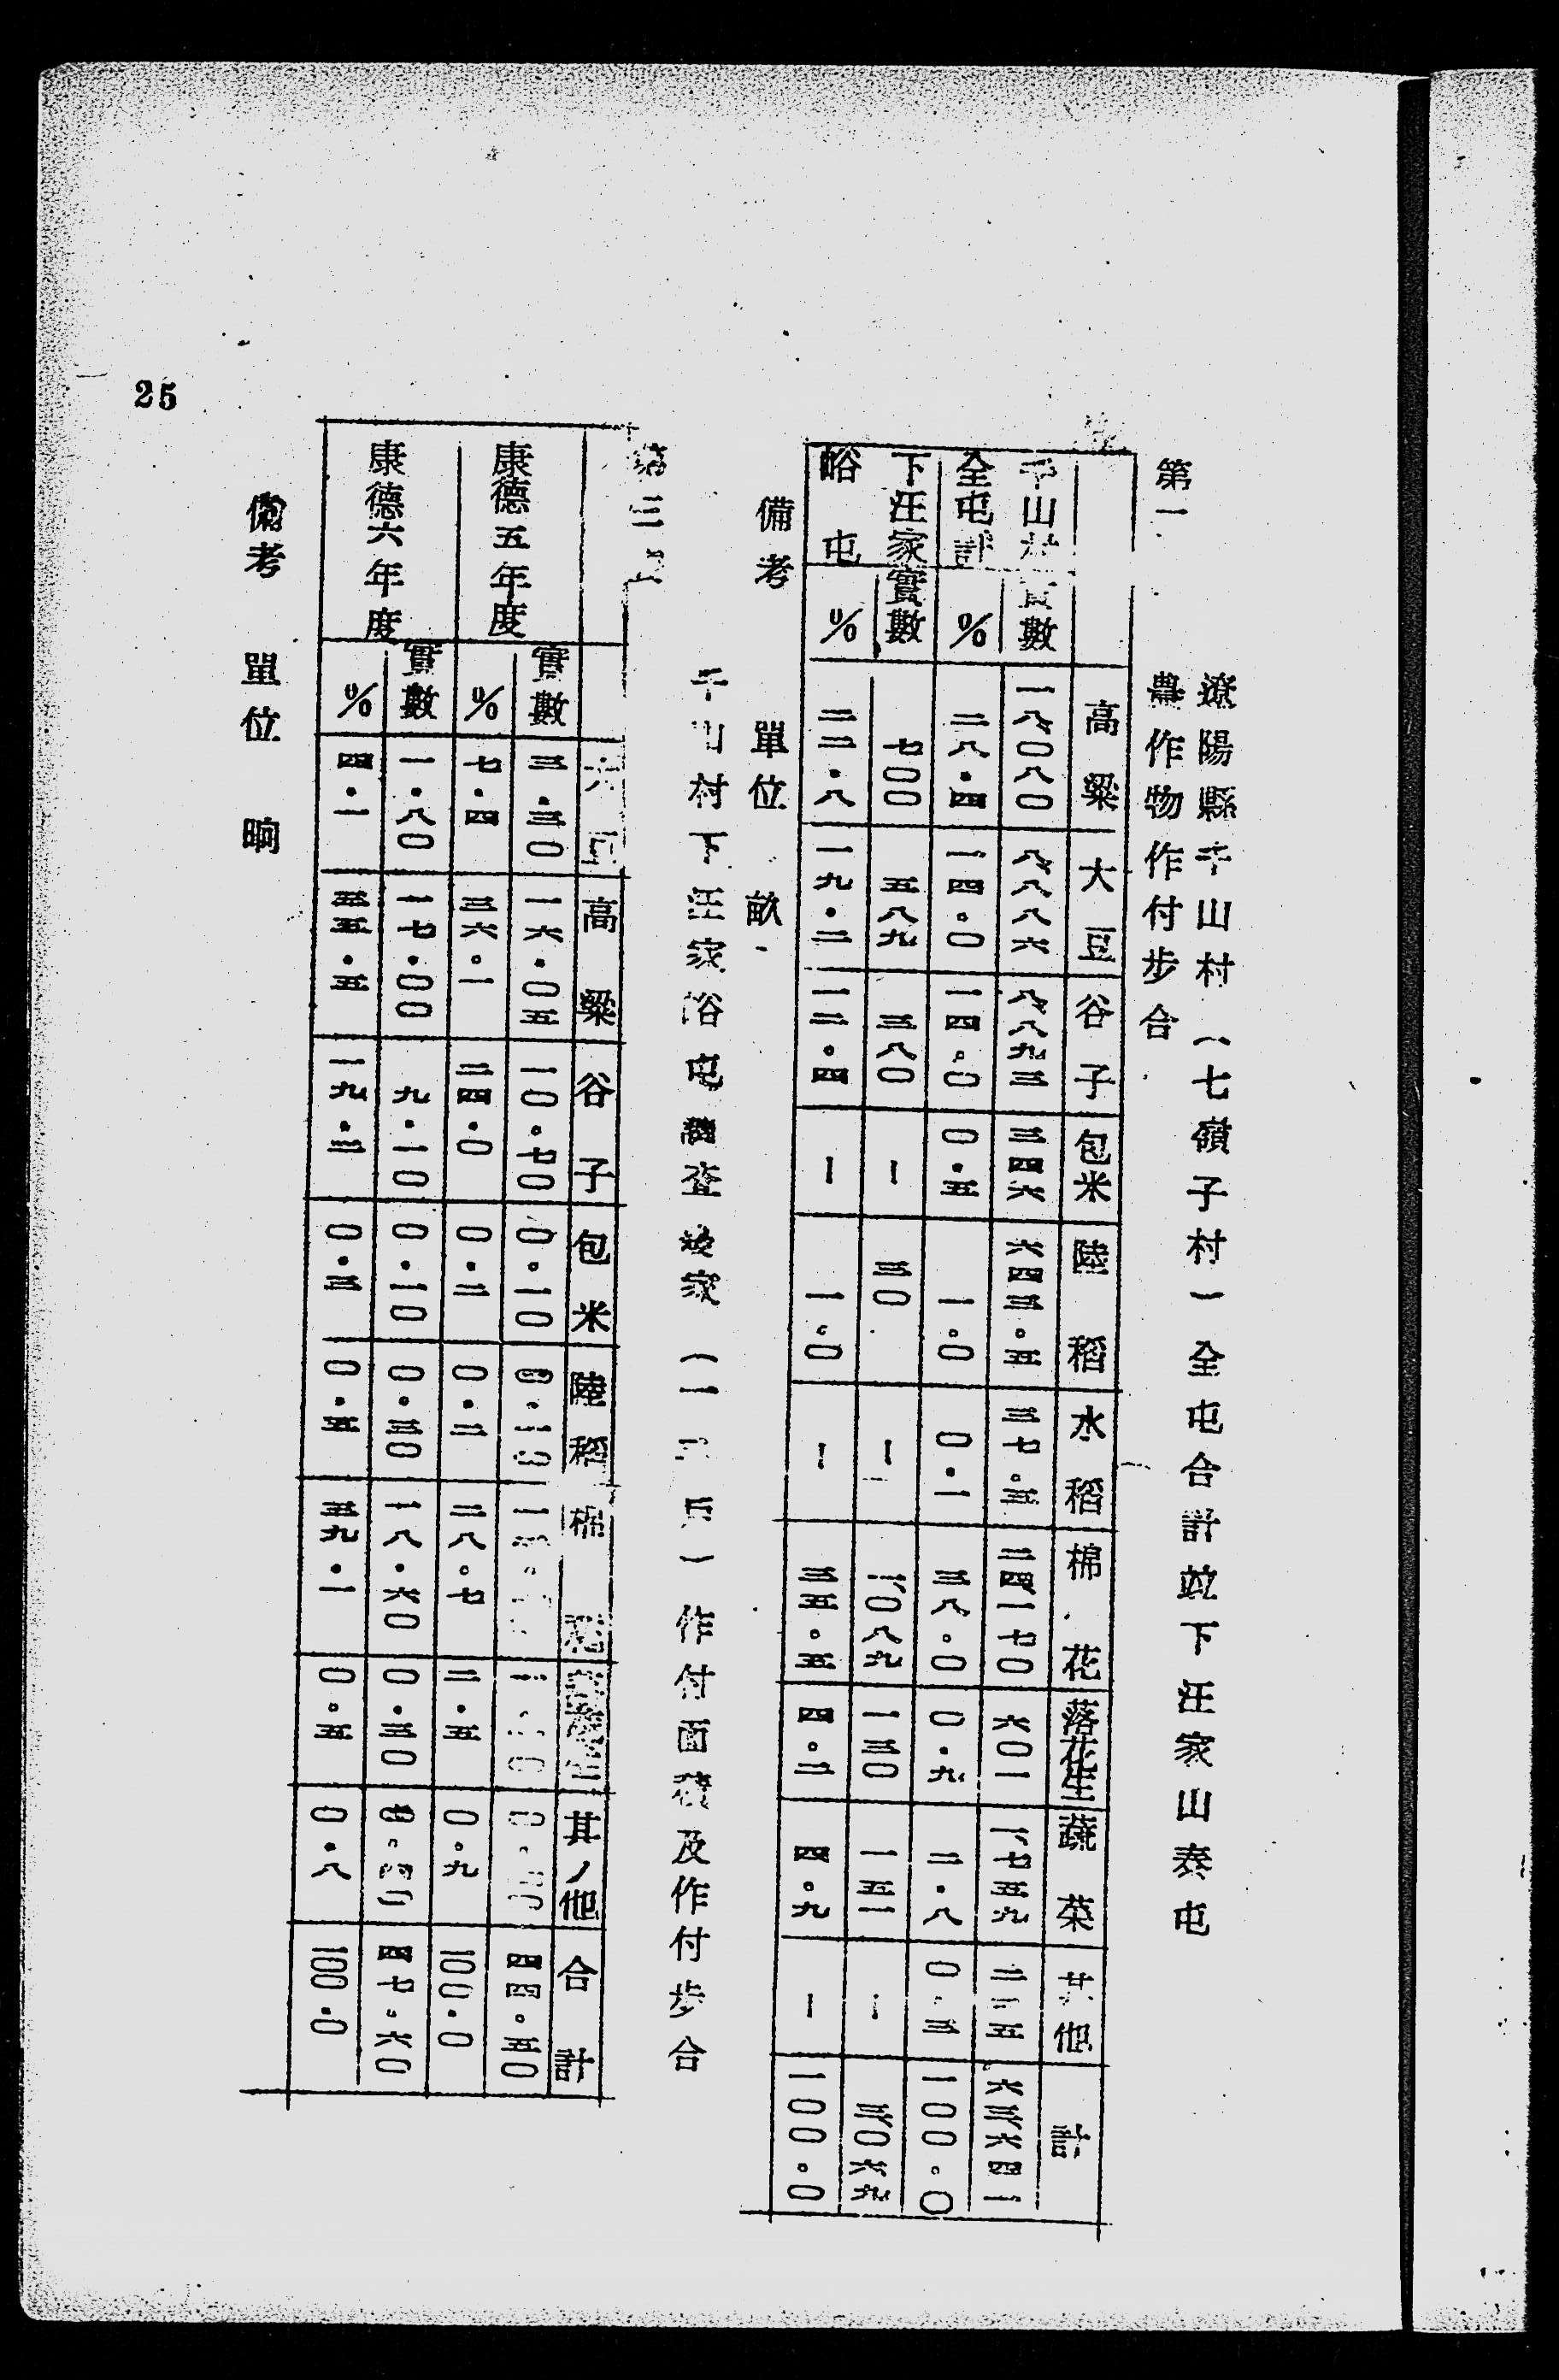 第一
遼陽縣千山村（七嶺子村一全屯合計竝下汪家山奏屯
農作物作付步合
高粱 大豆 谷子 包米 陸稻 水稻 棉花 落花生 蔬菜 其他 計
千山村 實數 一八、〇八〇 八、八八六 八、八九三 三四六 六四三。五 三七。三 二四、一七〇 六〇一 一、七五九 六三、六四一
全屯計 % 二八・四 一四。〇 一四。〇 〇・五 一。〇 〇・一 三八。〇 〇・九 二・八 〇・三 一〇〇。〇
下汪家 實數 七〇〇 五八九 三八〇 ー 三〇 ー 一、〇八九 一三〇 一五一 ー 三、〇六九
峪屯 % 二二・八 一九・二 一二。四 ー 一。〇 ー 三五。五 四。二 四。九 ー 一〇〇。〇
備考 單位 畝
第三
千山村下汪家峪屯調査農家（一 戶一作付面積及作付步合
大豆 高粱 谷子 包米 陸稻 棉花 落花生 其ノ他 合計
康德五年度 實數 三・三〇 一六・〇五 一〇・七〇 〇。一〇 四四。五〇
% 七・四 三六。一 二四・〇 〇・二 〇・二 二八。七 二・五 〇。九 一〇〇・〇
康德六年度 實數 一・八〇 一七・〇〇 九・一〇 〇・一〇 〇・三〇 一八・六〇 〇・三〇 四七。六〇
% 四・一 三五・五 一九・二 〇・三 〇・五 三九・一 〇。五 〇・八 一〇〇・〇
備考 單位 晌
25